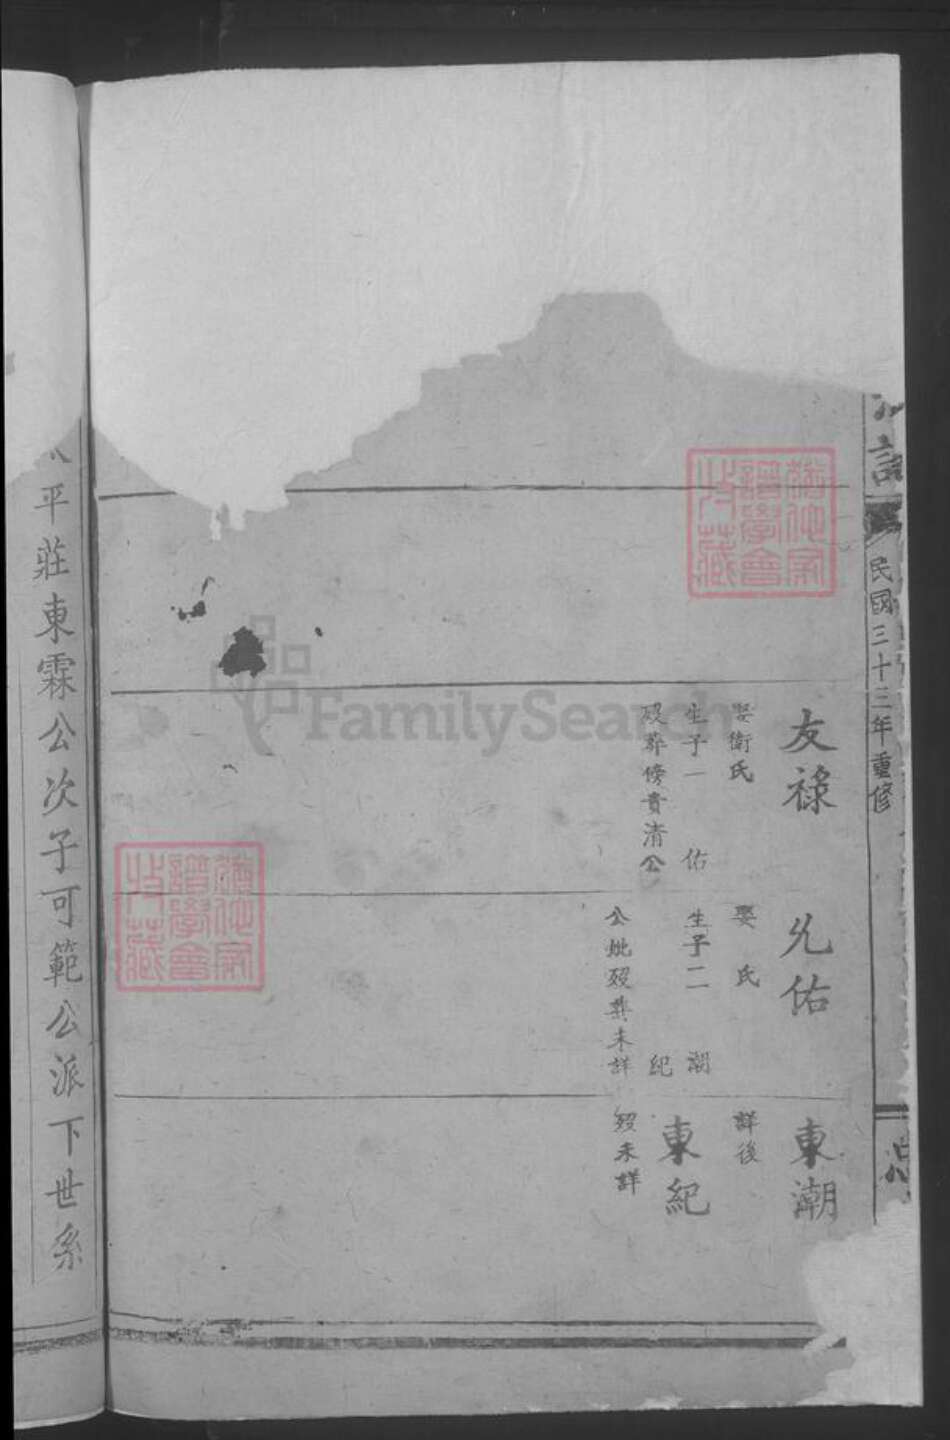 民國三十三年重修
友祿
娶衛氏
生子一 佑
歿葬傍貴清公
允佑
娶 氏
生子二 潮
紀
公妣歿葬未詳
東潮
詳後
東紀
歿未詳
平莊東霖公次子可範公派下世系
FamilySearch
譜學會
收藏
譜學會
收藏